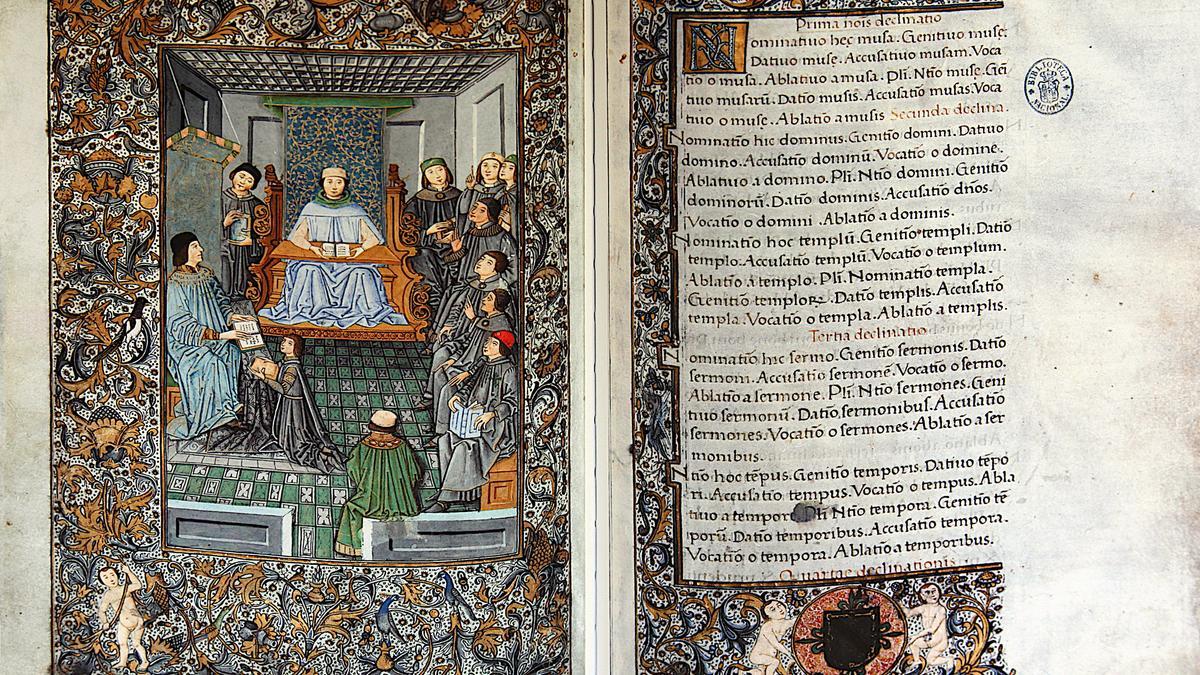 Prima nois declinatio
Nominatiuo hec musa. Genitiuo muse.
Datiuo muse. Accusatiuo musam. Voca
tio o musa. Ablatiuo a musa. Pli. Ntio muse. Geni
tiuo musarū. Datio musis. Accusatio musas. Voca
tiuo o muse. Ablatio a musis Secunda declina.
Nominatio hic dominus. Genitio domini. Datiuo
domino. Accusatio dominū. Vocatio o domine.
Ablatiuo a domino. Pli. Ntio domini. Genitio
dominorū. Datio dominis. Accusatio dños.
Vocatio o domini. Ablatio a dominis.
Nominatio hoc templū. Genitio templi. Datio
templo. Accusatio templū. Vocatio o templum.
Ablatio a templo. Pli. Nominatio templa.
Genitio temploꝝ. Datio templis. Accusatio
templa. Vocatio o templa. Ablatio a templis.
Tertia declinatio
Nominatio hic sermo. Genitio sermonis. Datio
sermoni. Accusatio sermonē. Vocatio o sermo.
Ablatio a sermone. Pli. Ntio sermones. Geni
tiuo sermonū. Datio sermonibus. Accusatio
sermones. Vocatio o sermones. Ablatio a ser
monibus.
Ntio hoc tēpus. Genitio temporis. Datiuo tēpo
ri. Accusatio tempus. Vocatio o tempus. Abla
tiuo a tempore Pli Ntio tempora. Genitio tē
porū. Datio temporibus. Accusatio tempora.
Vocatio o tempora. Ablatio a temporibus.
Quartae declinationis
BIBLIOTECA NACIONAL